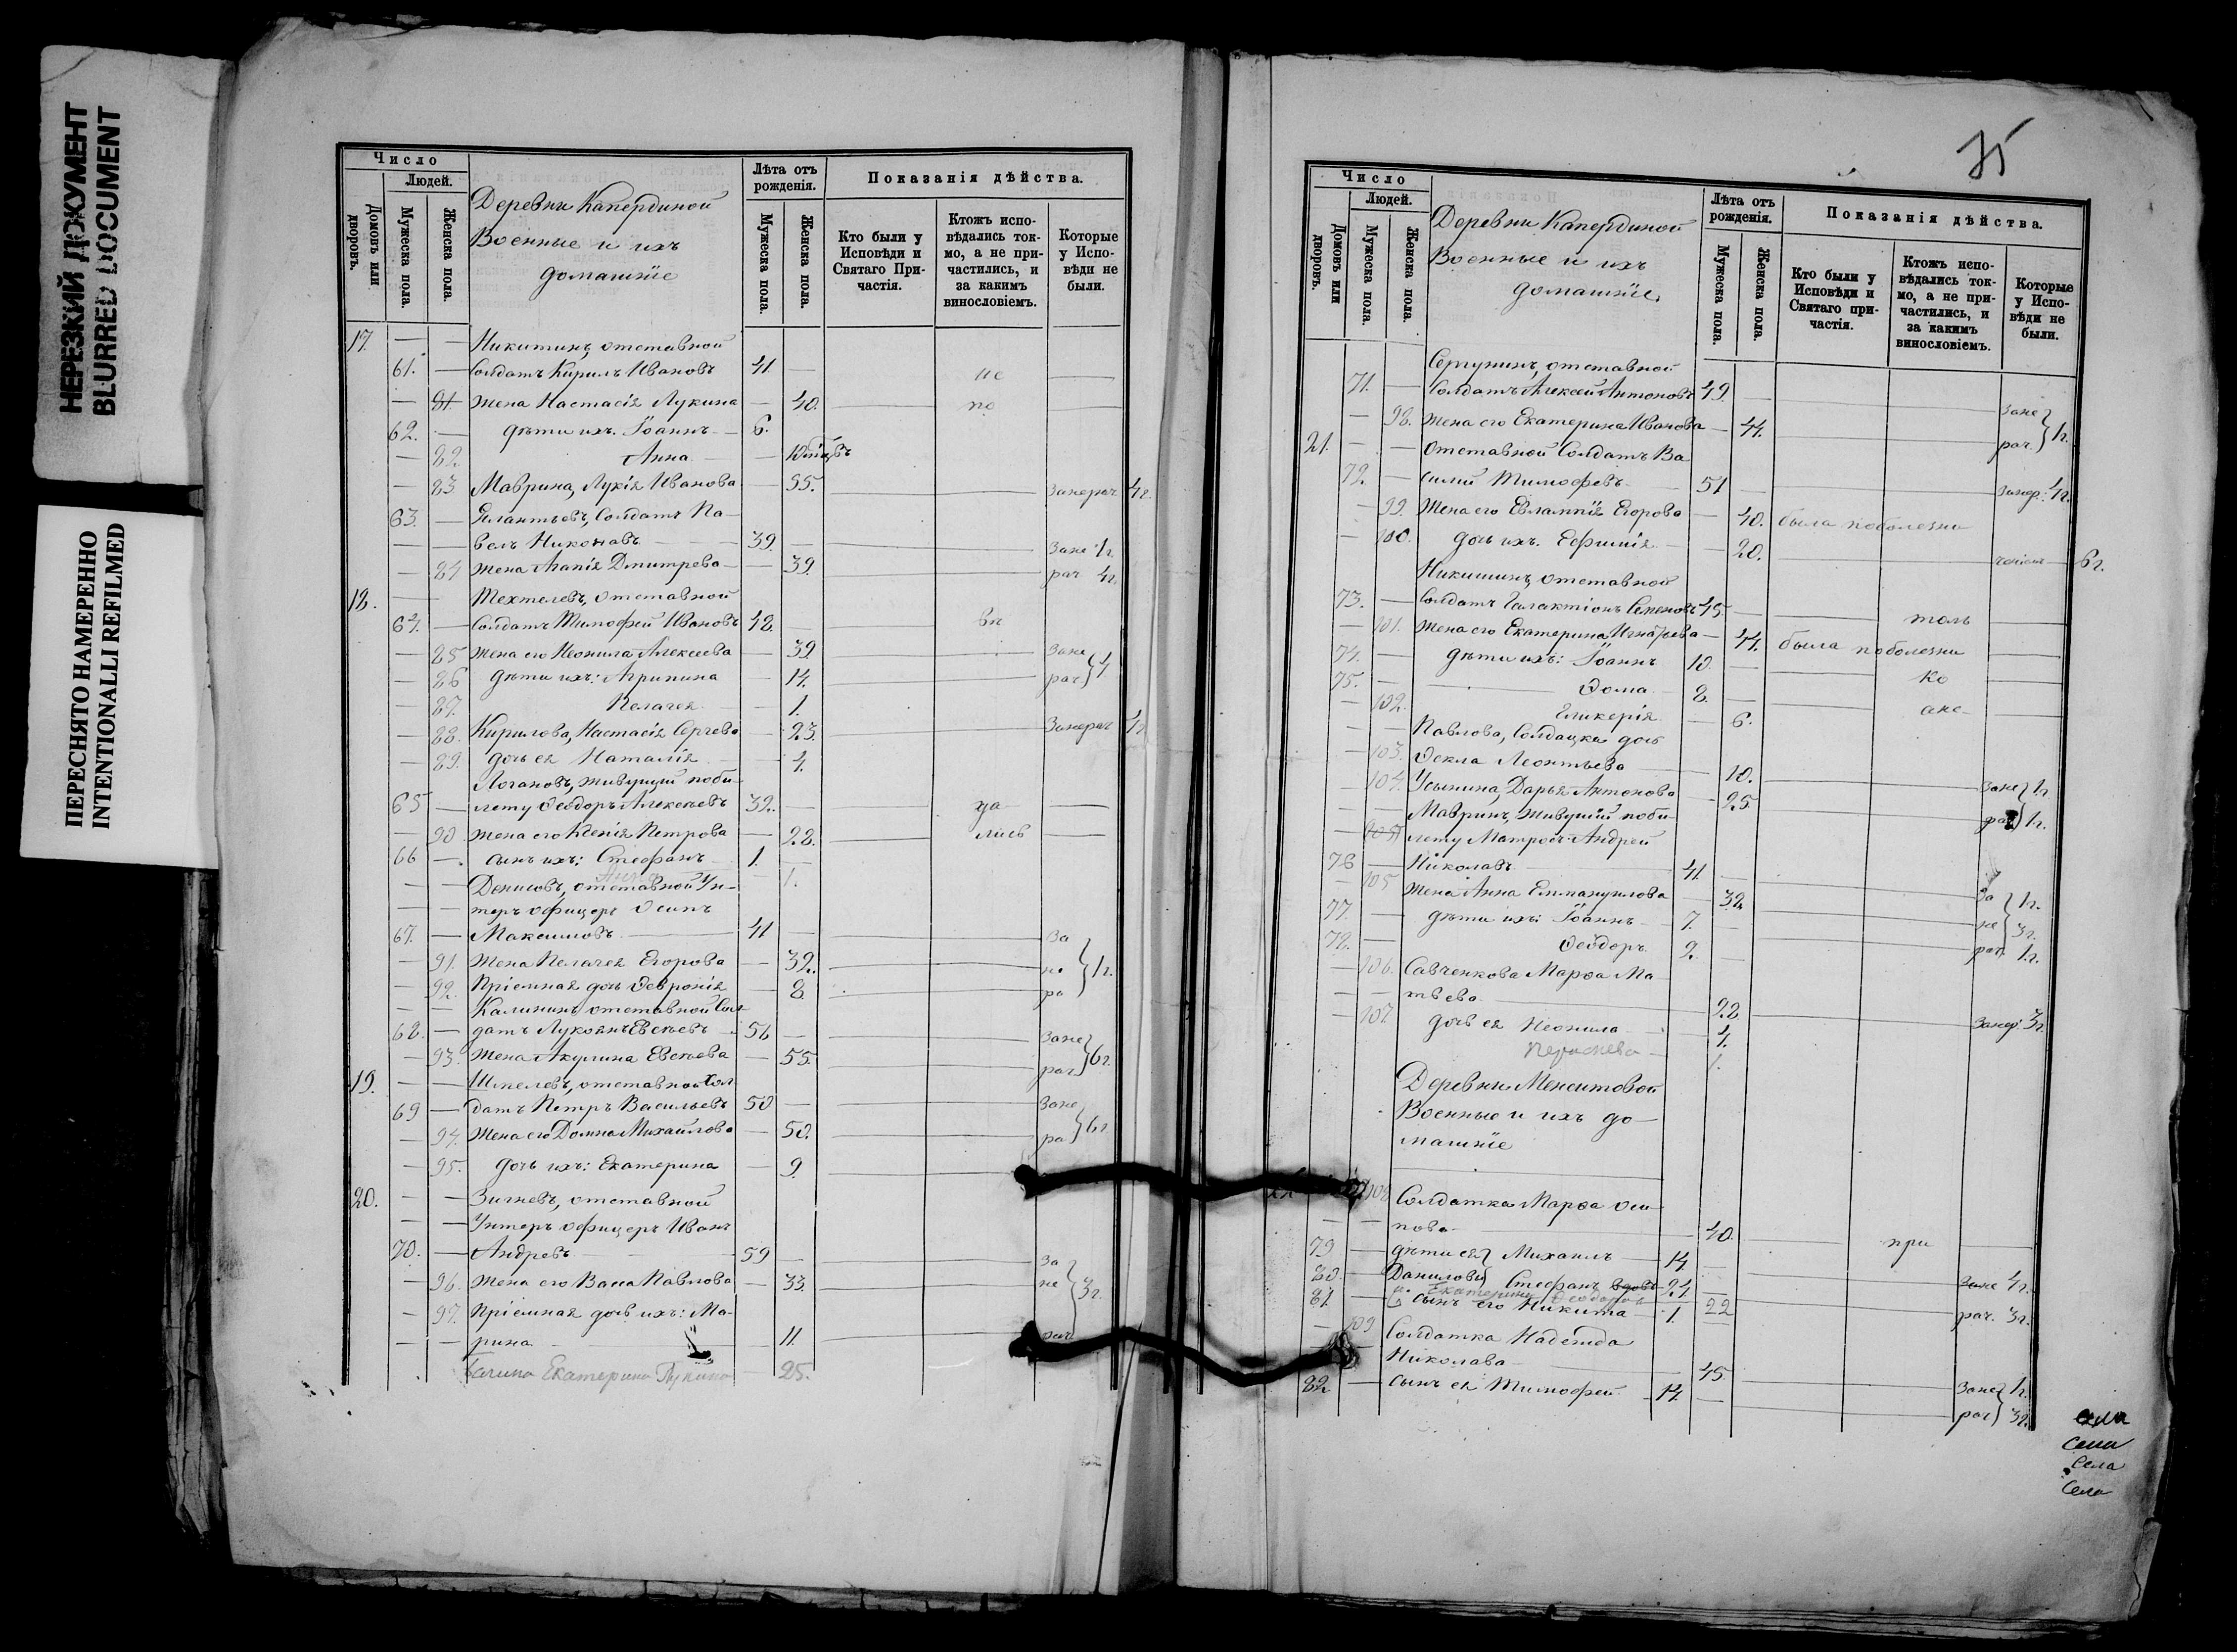 НЕРЕЗКИЙ ДОКУМЕНТ
BLURRED DOCUMENT
ПЕРЕСНЯТО НАМЕРЕННО
INTENTIONALLI REFILMED
Число
Людей.
Домовъ или дворовъ.
Мужеска пола.
Женска пола.
Деревни Капердиной
Военные и ихъ
домашніе
Лѣта отъ рожденія.
Мужеска пола.
Женска пола.
Показанія дѣйства.
Кто были у Исповѣди и Святаго Причастія.
Ктожъ исповѣдались токмо, а не причастились, и за какимъ винословіемъ.
Которые у Исповѣди не были.
17. — — Никитинъ, отставной
61. — Солдатъ Кирилъ Ивановъ 41. — не —
— 81. жена Настасія Лукина — 40. по —
62. — дѣти ихъ: Іоаннъ 6.
— 82. Анна
— 83 Маврина, Лукія Иванова — 55. Занерач 4г.
63. — Солдатъ Па-
— — велъ Никоновъ 39. — Зане 1г.
— 84 жена Агапія Дмитрева — 39. рач 4г.
18. — — отставной
64. — Солдатъ Тимофей Ивановъ 48. — вк
— 85 жена его Неонила Алексеева — 39. Зане
— 86 дѣти ихъ: Агрипина — 14. рач 4
— 87. Пелагея — 1.
— 88. Кирилова, Настасія Сергева — 23. Занерач 1г
— 89. дочь ея Наталія — 4.
Логановъ, живущій поби-
65 — лету Ѳеодоръ Алексѣевъ 32. — да —
— 90 жена его Ксенія Петрова — 28. лись —
66 — сынъ ихъ: Стефанъ 1. —
Анна — 1.
— — Денисовъ, отставной Ун-
— — теръ офицеръ Осипъ
67. — Максимовъ 41 — За
— 91. жена Пелагея Егорова — 32. не 1г.
— 92. Пріемная дочь Ѳевронія — 8. ра
— — Калининъ отставной Сол-
68. — датъ Лукоянъ Евсѣевъ 56 — Зане
— 93. жена Акулина Евсѣева — 55. рач 6г.
19. — — Шмелевъ, отставной Сол-
69 — датъ Петръ Васильевъ 50 — Зане
— 94. жена его Домна Михайлова — 50. ра 6г
— 95. дочь ихъ: Екатерина — 9.
20. — — отставной
— — Унтеръ офицеръ Иванъ
70. — Андревъ 59 — За
— 96. жена его Васса Павлова — 33. не 3г.
— 97. Пріемная дочь ихъ: Ма-
— — рина — 11. рач
Екатерина Лукина — 25.
75
Число
Людей.
Домовъ или дворовъ.
Мужеска пола.
Женска пола.
Деревни Капердиной
Военные и ихъ
домашніе.
Лѣта отъ рожденія.
Мужеска пола.
Женска пола.
Показанія дѣйства.
Кто были у Исповѣди и Святаго причастія.
Ктожъ исповѣдались токмо, а не причастились, и за какимъ винословіемъ.
Которые у Исповѣди не были.
Сергунинъ, отставной
71. — Солдатъ Алексей Антоновъ 49. — Зане
— 98. жена его Екатерина Иванова — 44. рач. 1г.
21. — — Отставной Солдатъ Ва-
72. — силій Тимофевъ 51 — Занер. 1г.
— 99. жена его Евлампія Егорова — 40. была поболезни
— 100. дочь ихъ: Ефимія — 20. 6г.
Никишинъ, отставной
73. — Солдатъ Галактіонъ Семеновъ 45. — толь —
— 101. жена его Екатерина — 44. была поболезни —
74. — дѣти ихъ: Іоаннъ 10. — ко —
75. — Ѳома 8. —
— 102. Гликерія — 6. —
Павлова, Солдацкая дочь
— 103. Ѳекла Леонтьева — 10. Зане 1г
— 104. Усынина, Дарья Антонова — 25. рач 1г.
Мавринъ, живущій поби-
— лету Матросъ Андрей
76 — Николавъ 41. —
— 105 жена Анна Еммануилова — 32. За 1г.
77. — дѣти ихъ: Іоаннъ 7. — не 3г.
78. — Ѳеодоръ 2. — рач. 1г.
— 106. Савченкова Марѳа Ма-
— — твѣева 22 Занер. 3г.
— 107. дочь ея Неонила 4.
1.
Деревни Менситовой
Военные и ихъ до-
машніе
108 Солдатка Марѳа Оси-
— — пова — 40. при —
79 — дѣти ея Михаилъ 14. —
80. — Даниловы Стефанъ вдовъ 21. — Зане 1г.
Екатерина Ѳеодорова 22
81. — сынъ его Никита 1. рач. 3г.
— 109 Солдатка Надежда
Николава — 45. Зане 1г.
82. — сынъ ея Тимофей 14. — рач 3г.
села
Села
Села
Села